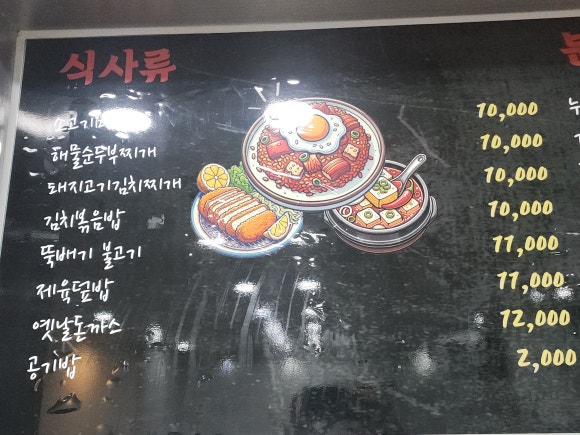 식사류
10,000
해물순두부찌개 10,000
돼지고기김치찌개 10,000
김치볶음밥 10,000
뚝배기 불고기 11,000
제육덮밥 11,000
옛날돈까스 12,000
공기밥 2,000